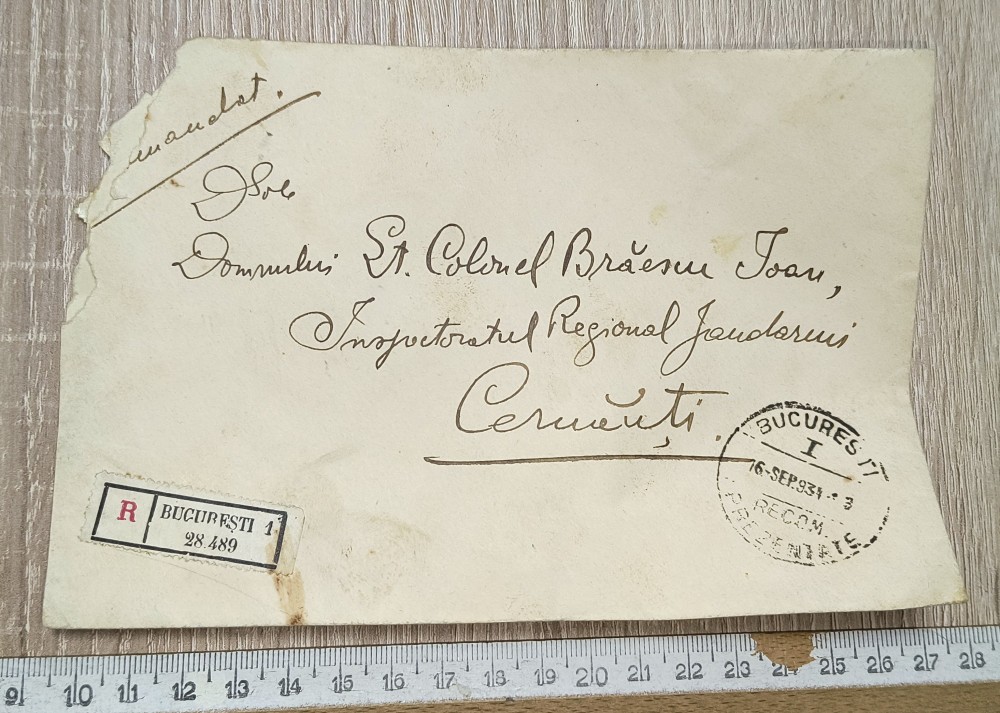 mandat.
Dsale
Domnului Lt. Colonel Brăescu Ioan,
Inspectoratul Regional Jandarmi
Cernăuți.
BUCUREȘTI
I
16-SEP.934.-* 3
RECOM.
PREZENTATE
R BUCUREȘTI 1
28.489
9 10 11 12 13 14 15 16 17 18 19 20 21 22 23 25 26 27 28